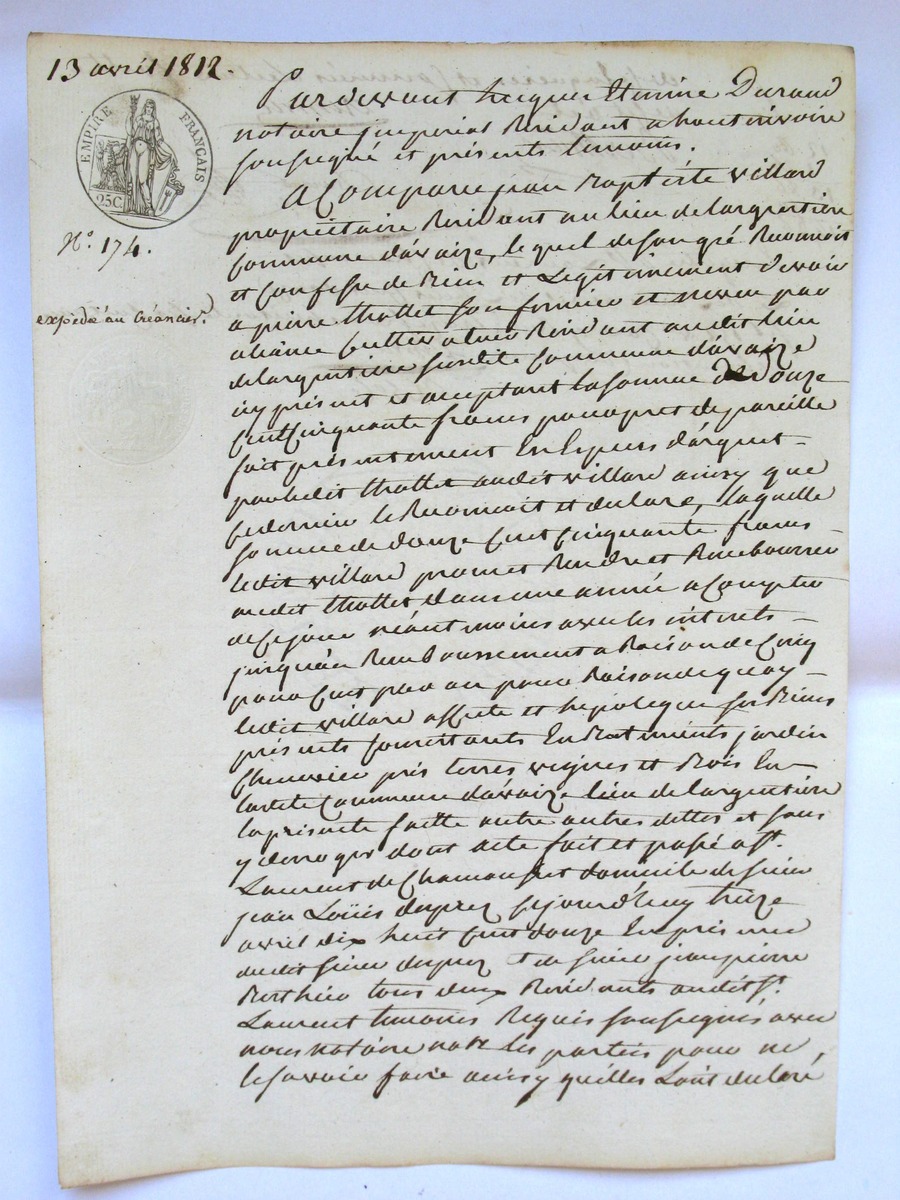 13 avril 1812.
EMPIRE FRANÇAIS
25C.
N.° 174.
expédié au Créancier.
Pardevant Jacques Etienne Durand
notaire imperial Residant a hautrivoire
soussigné et présents temoins.
A Comparu jean Baptiste villard
propriétaire Residant au lieu de largentiere
Commune d'avaize, lequel de son gré Reconnoit
et Confesse de Bien et Legitimement devoir
a pierre thollet son fermier et neveu par
aliance Cultivateur Residant audit lieu
delargentiere susdite Commune d'avaize
icy présent et acceptant la somme de Douze
Cent Cinquante francs pour pret de pareille
fait présentement En Especes d'argent
par ledit thollet audit villard ainsy que
Ce dernier le Reconnoit et declare, laquelle
somme de douze Cent Cinquante francs
ledit villard promet Rendre et Rembourser
audit thollet, dans une année a Compter
de Ce jour néant moins avec les interets
jusqu'au Remboursement a Raison de Cinq
pour Cent par an pour Raison de quoy
ledit villard affecte et hipoteque ses Biens
présents Consistants En Batiments jardin
Chenevier prés terres vignes et Bois En
ladite Commune d'avaize lieu de largentiere
la présente faitte outre autres dettes et sans
y deroger dont acte fait et passé a S.t
Laurent de Chamousset domicile de sieur
jean Loüis dupré Cejourd'huy treize
avril dix huit Cent douze En présence
dudit sieur dupré et de sieur jean pierre
Berthier tous deux Residents audit S.t
Laurent temoins Requis soussignés avec
nous notaire non Les parties pour ne
le savoir faire ainsy quelles L'ont declaré,